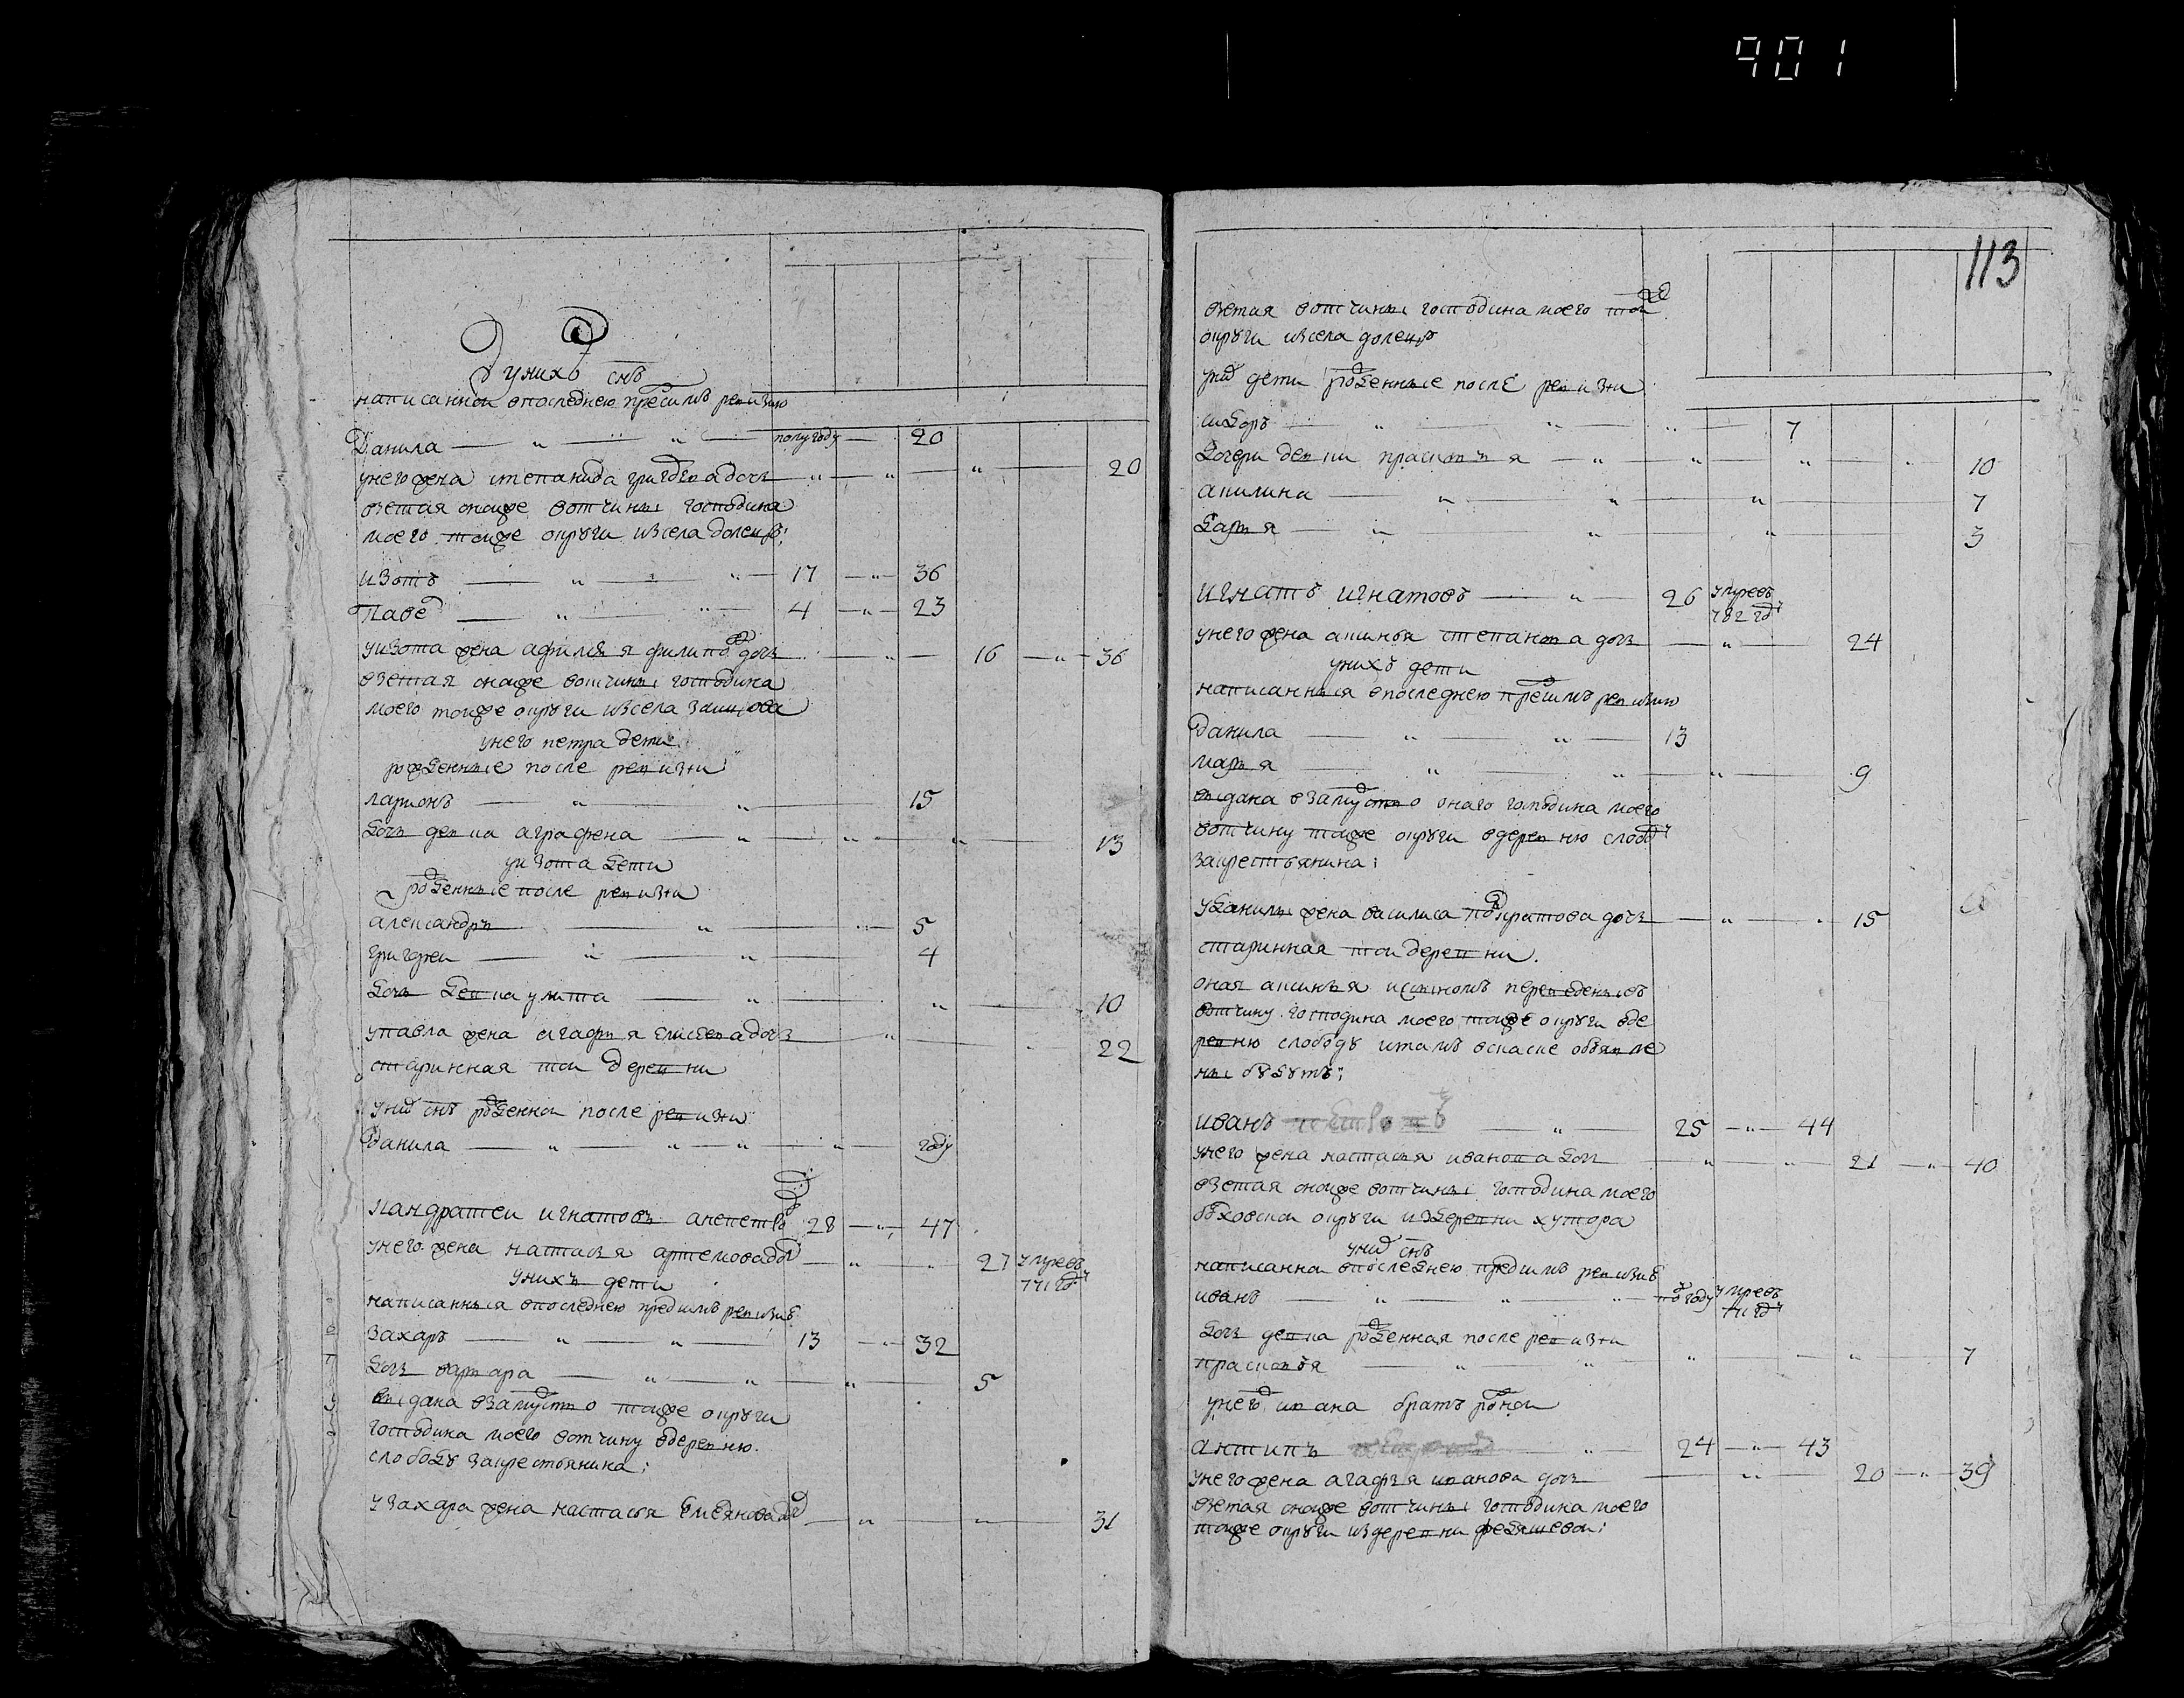 901
113
у них снъ
написанной в последнею пред симъ ревизию
Данила — " — " — полугоду — 20
у него жена степанида григорева дочь — " — " — " — 20
взетая оной же вотчины господина
моего той же округи из села долецъ;
изотъ — " — " — 17 — " — 36
Павел — " — " — 4 — " — 23
у изота жена афимья филипова дочь — " — 16 — " — 36
взетая оной же вотчины господина
моего той же округи из села
у него петра дети
рожденные после ревизии
ларионъ — " — " — 15
дочь девка аграфена — " — " — " — 13
у изота дети
рожденные после ревизии
александръ — " — " — 5
григореи — " — " — 4
дочь девка улита — " — " — 10
у павла жена агафья дочь — " — 22
старинная той деревни
у них снъ рожденной после ревизии
Данила — " — " — " — " — году
кандратеи игнатовъ 28 — " — 47
у него жена наталья артемова дочь — " — " 27 умре въ 771 году
у них дети
написанныя в последнею пред симъ ревизию
Захаръ — " — " — 13 — " — 32
дочь варвара — " — " — " — 5
выдана в замужство той же округи
господина моего вотчину в деревню
слободу за крестьянина;
у Захара жена настасья Емельянова дочь — " — " — 31
взетая вотчины господина моего той
округи из села долецъ
у них дети рожденные после ревизии
федоръ — " — " — " — 7
дочери девки прасковья — " — " — " — " 10
акилина — " — " — " — 7
дарья — " — " — " — 3
игнатъ игнатовъ — " — 26 умре въ 782 году
у него жена аксинья степанова дочь — " — 24
у них дети
написанныя в последнею пред симъ ревизию
Данила — " — " — 13
марья — " — " — " — 9
выдана в замужство онаго господина моего
вотчину той же округи в деревню слободу
за крестьянина;
у Данилы жена василиса дочь — " — " 15
старинная той деревни.
оная аксинья и с сыномъ переведены въ
вотчину господина моего той же округи в де
ревню слободу и тамъ в скаске объявле
ны будутъ;
иванъ — " — 25 — " — 44
у него жена настасья иванова дочь — " — " — 21 — " — 40
взетая оной же вотчины господина моего
болховской округи из деревни хутора
у них снъ
написанной в последнею пред симъ ревизию
иванъ — " — " — " — году умре въ году
дочь девка рожденная после ревизии
прасковья — " — " — " — " — 7
у него ивана братъ родной
антипъ — " — 24 — " — 43
у него жена агафья иванова дочь — " — 20 — " — 39
взетая оной же вотчины господина моего
той же округи из деревни федяшевой;